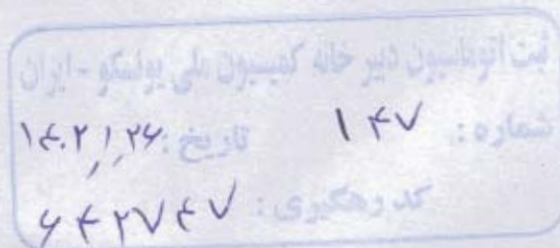 ثبت اتوماسیون دبیر خانه کمیسیون ملی یونسکو - ایران
شماره : ۱۴۷ تاریخ : ۱۴۰۲,۱,۲۶
کد رهگیری : ۶۴۲۷۴۷